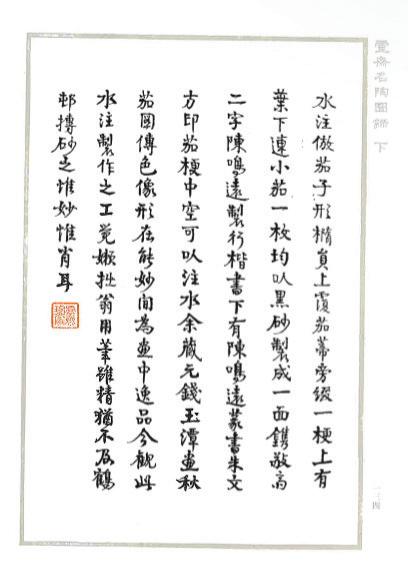 壺齋名陶圖錄 下
水注倣茄子形橢負上覆茄蒂旁綴一梗上有
葉下連小茄一枚均以黑砂製成一面鐫敬高
二字陳鳴遠製行楷書下有陳鳴遠篆書朱文
方印茄梗中空可以注水余藏元錢玉潭畫秋
茄圖傅色像形在能妙間為畫中逸品今觀此
水注製作之工覺嬾拙翁用筆雖精猶不及鶴
邨摶砂之惟妙惟肖耳
一二四